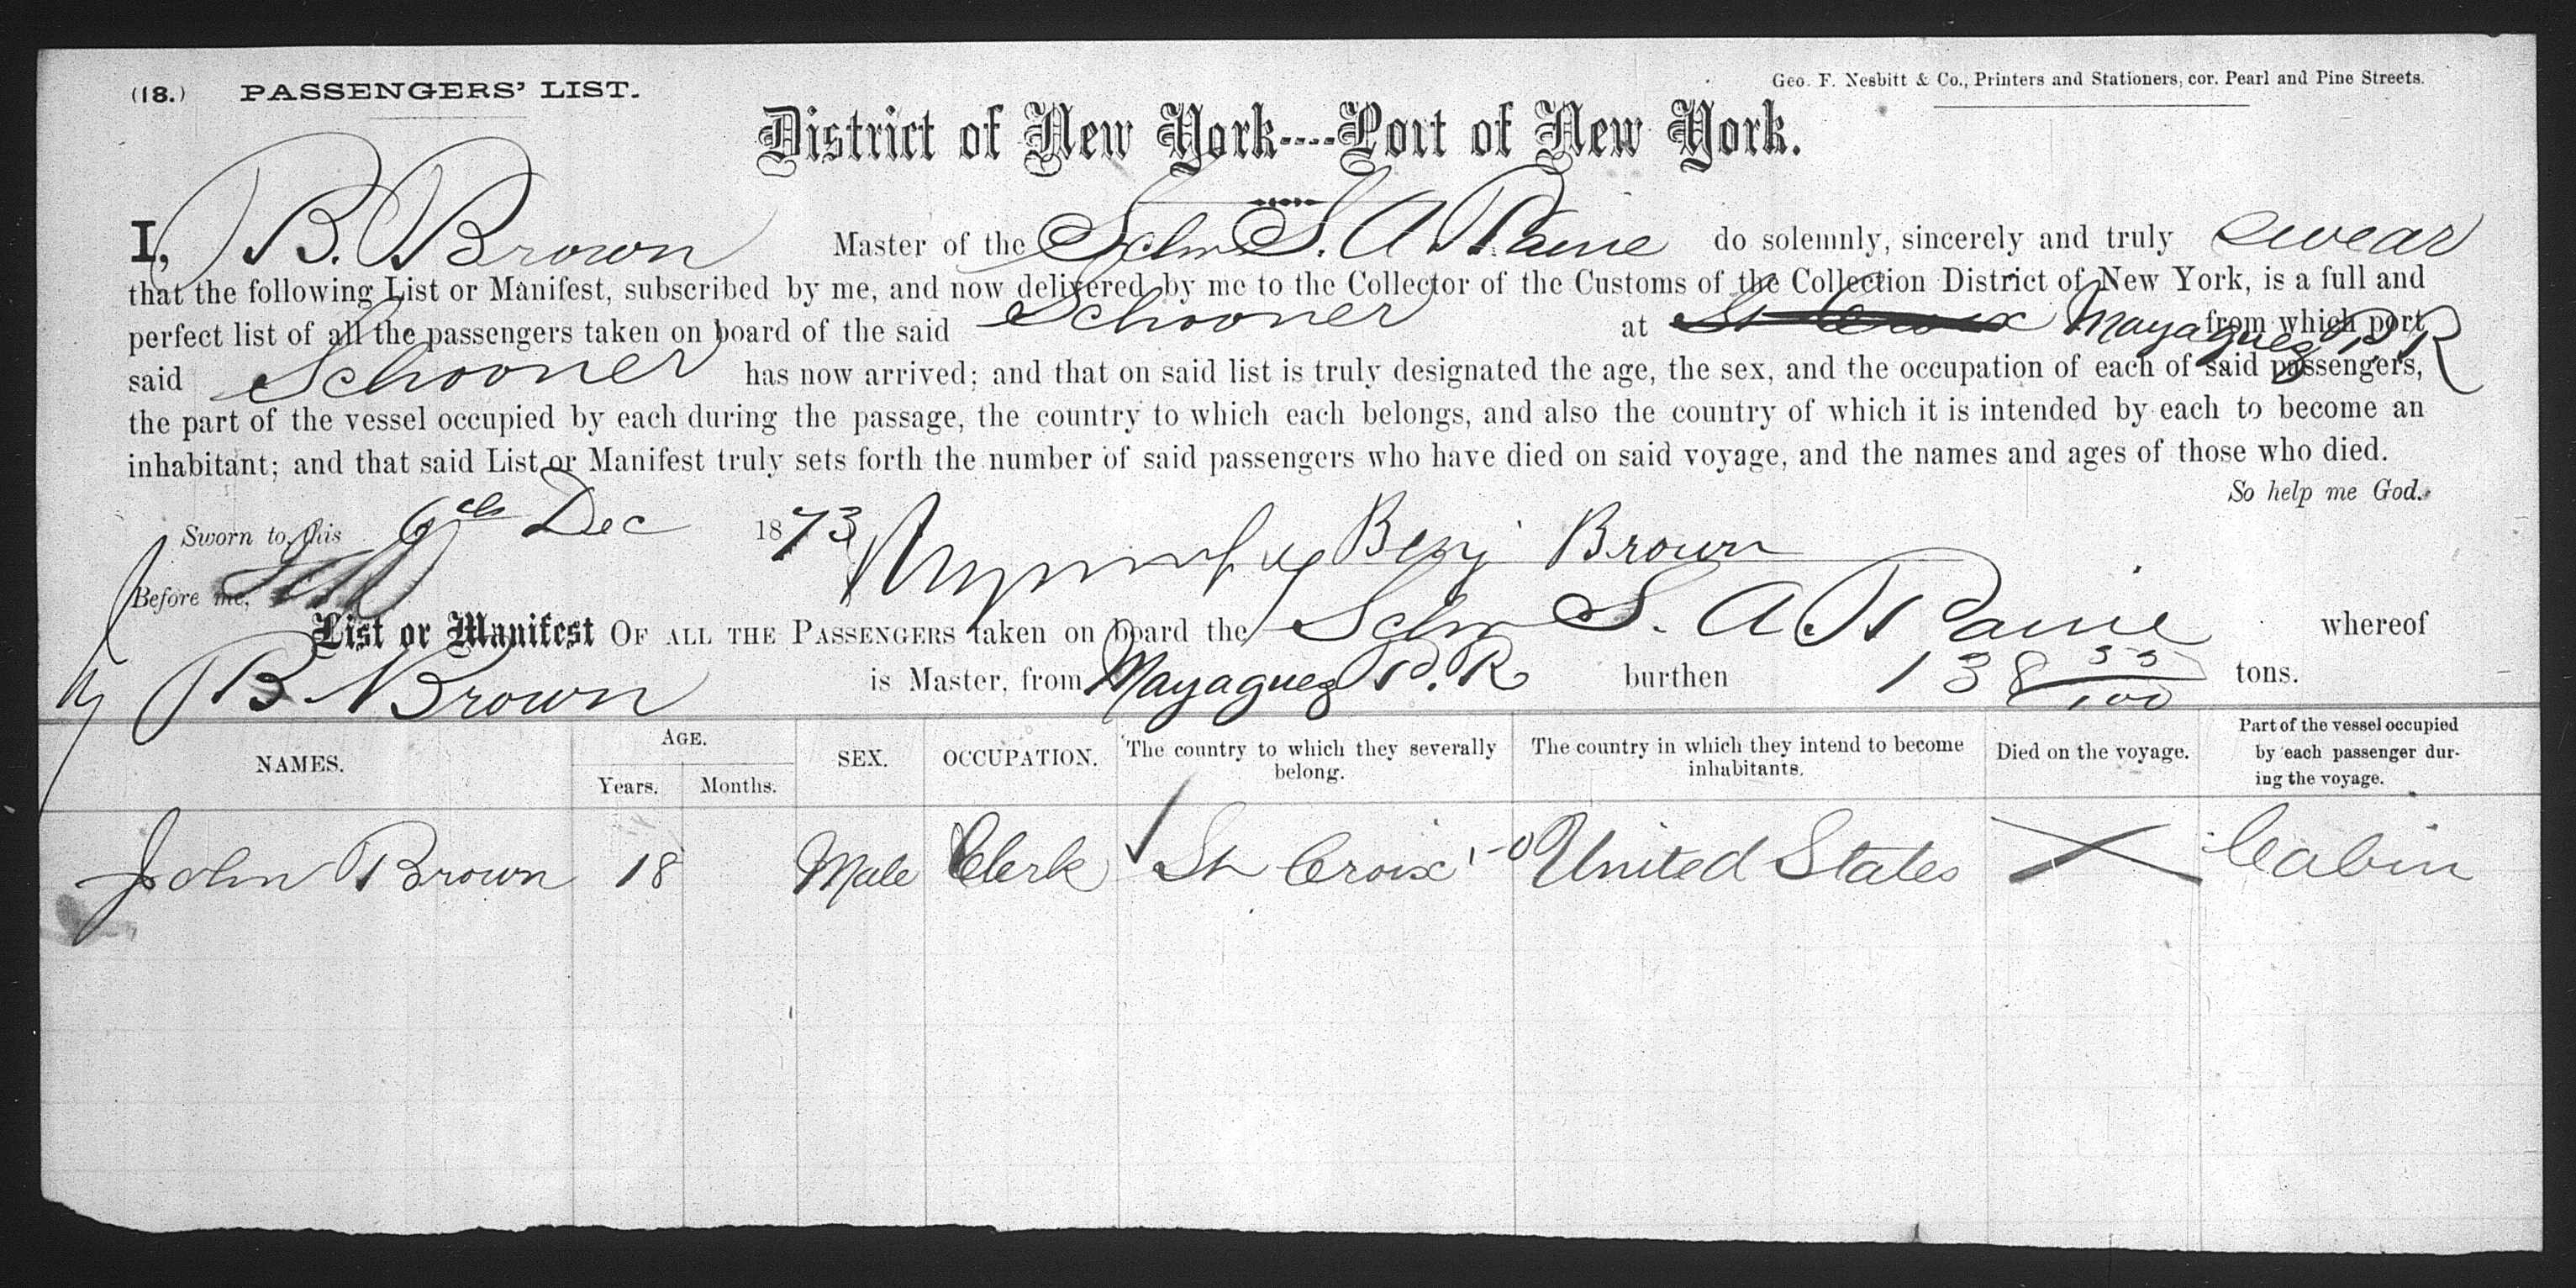 (18.) PASSENGERS' LIST.
Geo. F. Nesbitt & Co., Printers and Stationers, cor. Pearl and Pine Streets.
District of New York----Port of New York.
I, B. Brown Master of the Schr S. A Paine do solemnly, sincerely and truly swear
that the following List or Manifest, subscribed by me, and now delivered by me to the Collector of the Customs of the Collection District of New York, is a full and
perfect list of all the passengers taken on board of the said Schooner at St Croix Mayaguez P R from which port
said Schooner has now arrived; and that on said list is truly designated the age, the sex, and the occupation of each of said passengers,
the part of the vessel occupied by each during the passage, the country to which each belongs, and also the country of which it is intended by each to become an
inhabitant; and that said List or Manifest truly sets forth the number of said passengers who have died on said voyage, and the names and ages of those who died.
So help me God.
Sworn to, this 6th Dec 1873 Benj Brown
Before me,
List or Manifest OF ALL THE PASSENGERS taken on board the Schr S. A Paine whereof
B Brown is Master, from Mayaguez P. R burthen 138 55/100 tons.
NAMES.
AGE.
Years.
Months.
SEX.
OCCUPATION.
The country to which they severally
belong.
The country in which they intend to become
inhabitants.
Died on the voyage.
Part of the vessel occupied
by each passenger dur-
ing the voyage.
John Brown 18 Male Clerk St Croix United States Cabin